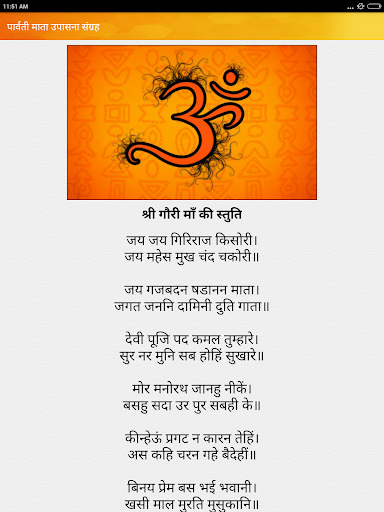 11:51 AM
पार्वती माता उपासना संग्रह
ॐ
श्री गौरी माँ की स्तुति
जय जय गिरिराज किसोरी।
जय महेस मुख चंद चकोरी॥
जय गजबदन षडानन माता।
जगत जननि दामिनी दुति गाता॥
देवी पूजि पद कमल तुम्हारे।
सुर नर मुनि सब होहिं सुखारे॥
मोर मनोरथ जानहु नीकें।
बसहु सदा उर पुर सबही के॥
कीन्हेऊं प्रगट न कारन तेहिं।
अस कहि चरन गहे बैदेहीं॥
बिनय प्रेम बस भई भवानी।
खसी माल मुरति मुसुकानि॥